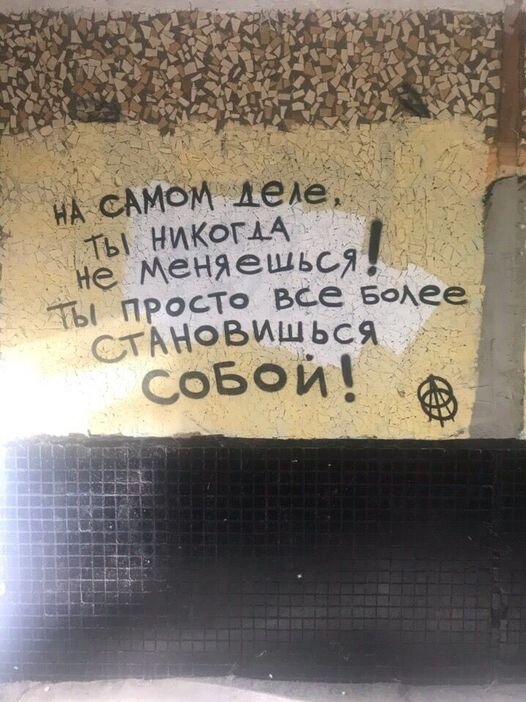 НА САМОМ ДЕЛЕ,
ТЫ НИКОГДА
НЕ МЕНЯЕШЬСЯ!
ТЫ ПРОСТО ВСЕ БОЛЕЕ
СТАНОВИШЬСЯ
СОБОЙ!